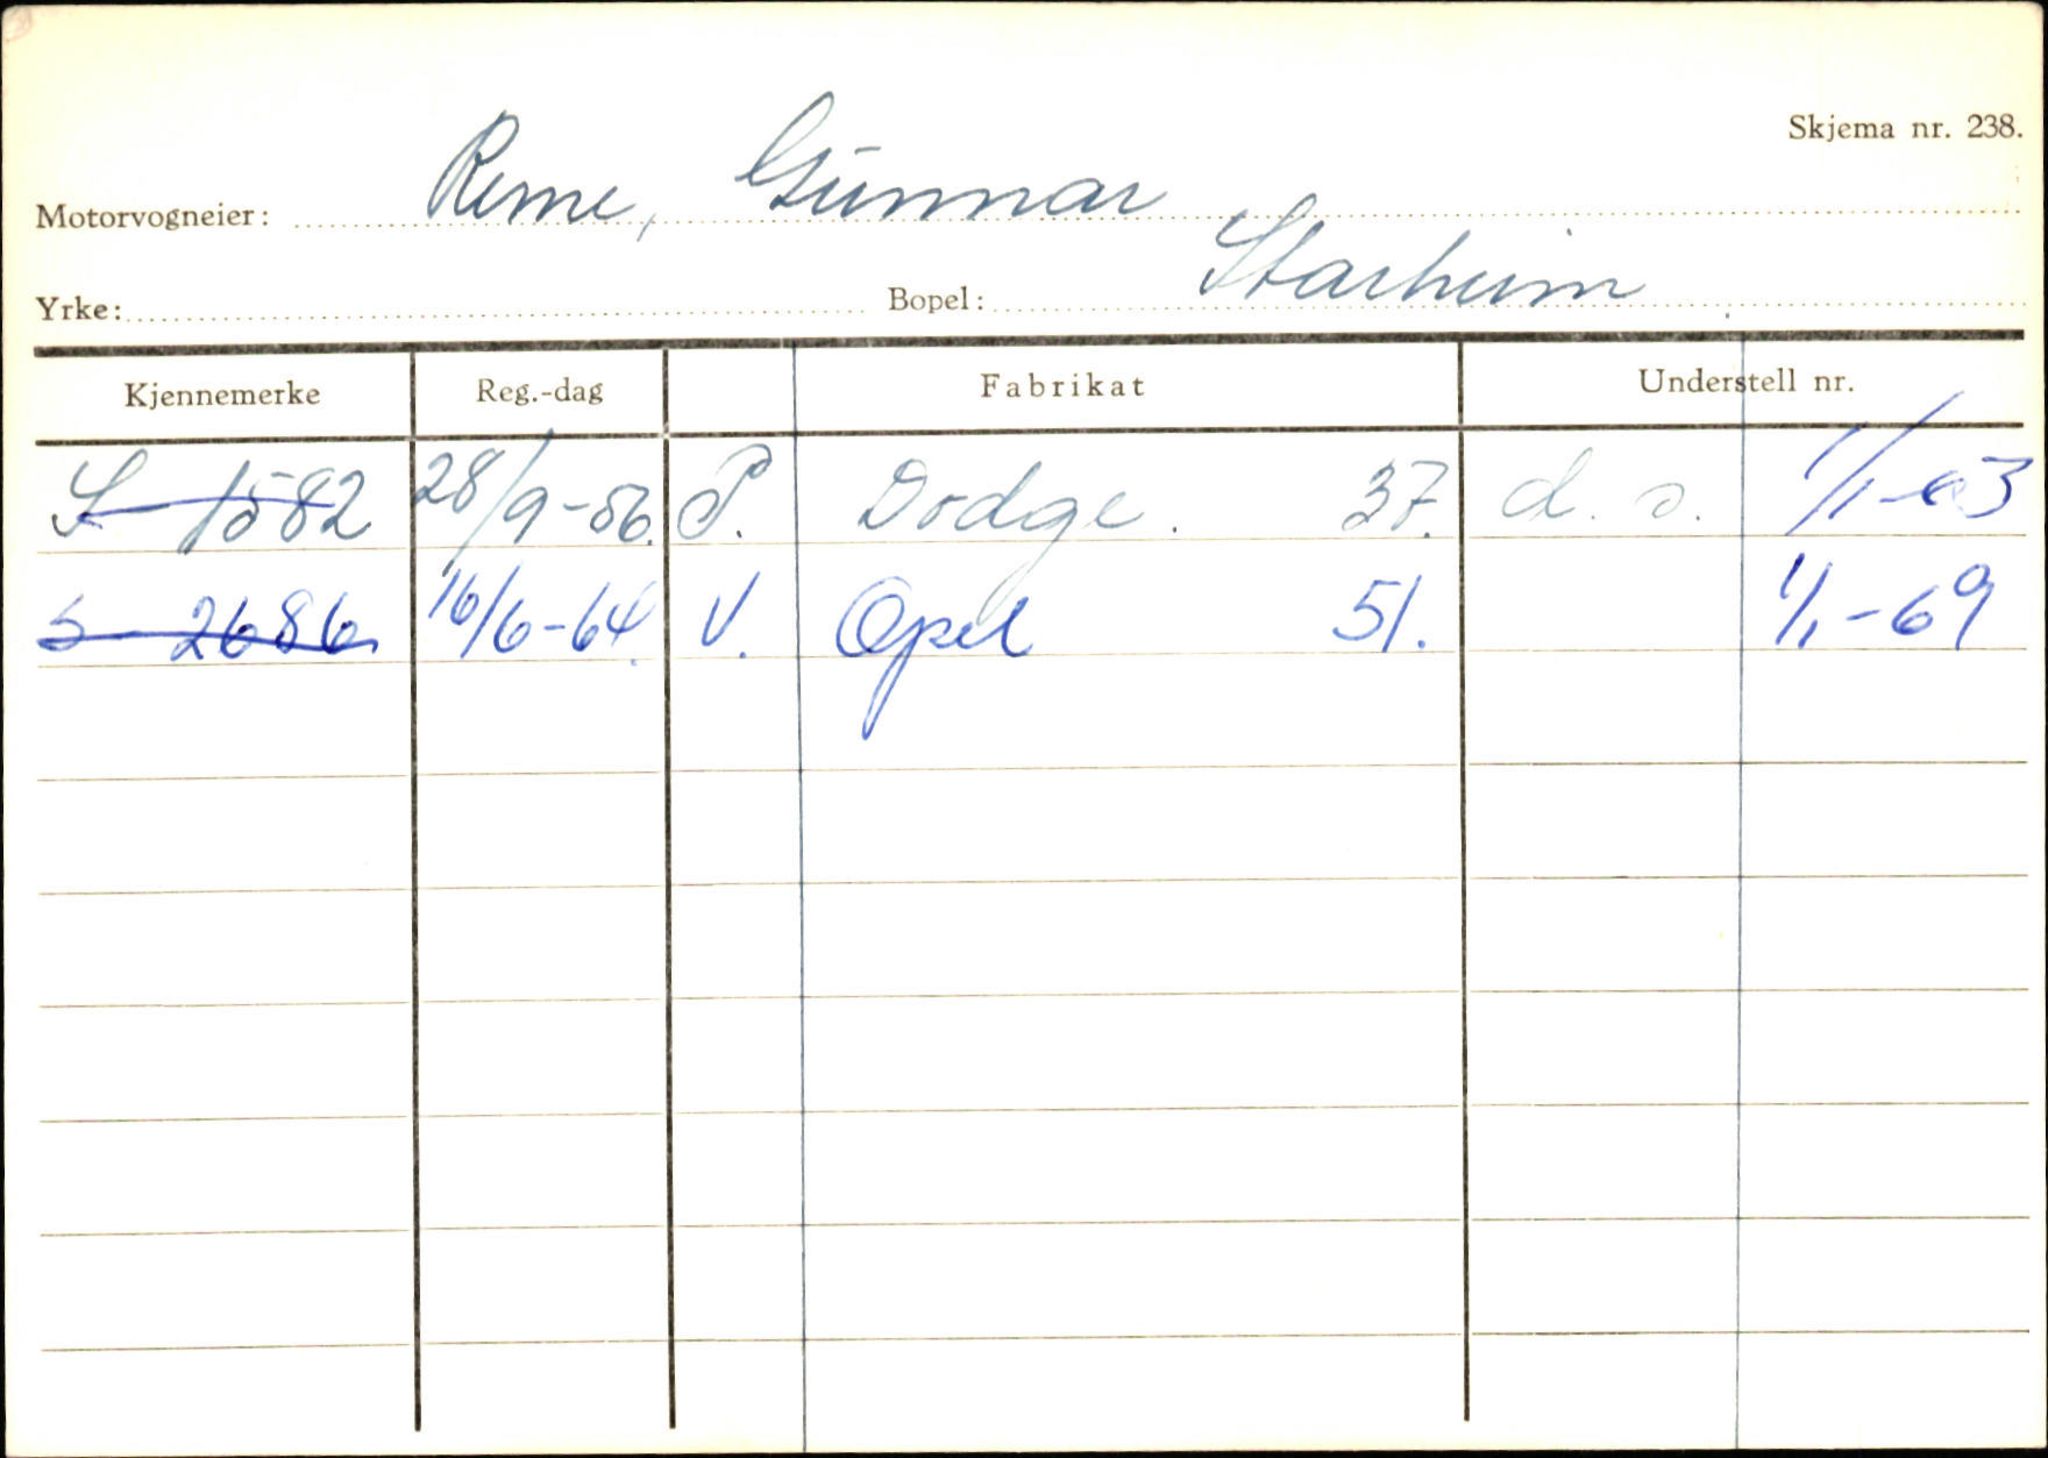 Skjema nr. 238.
Motorvogneier: Reme, Gunnar
Yrke: Bopel: Starheim
Kjennemerke Reg.-dag Fabrikat Understell nr.
S 1582 28/9-56. P. Dodge. 37. d. o. 1/1-63
S 2686 16/6-64. V. Opel 51. 1/1-69